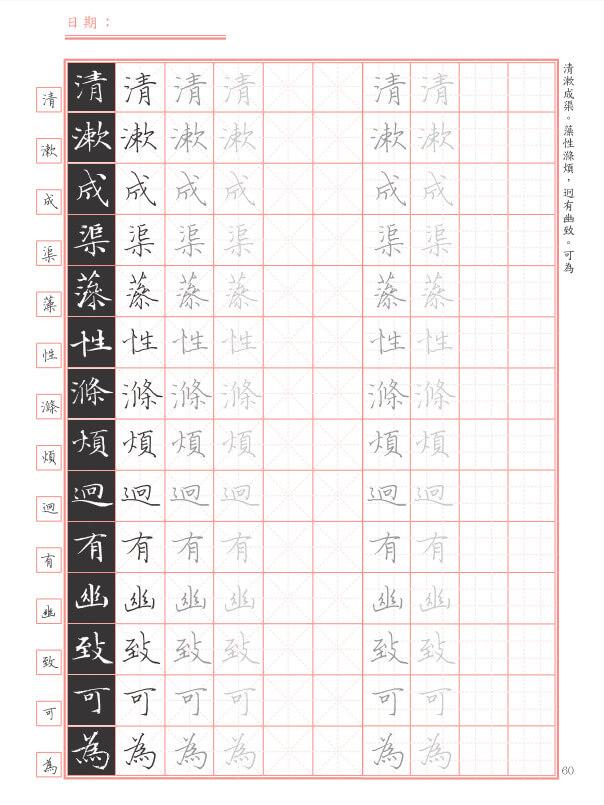 日期：
清漱成渠。藻性滌煩，迥有幽致。可為
清 清 清 清 清 清 清
漱 漱 漱 漱 漱 漱 漱
成 成 成 成 成 成 成
渠 渠 渠 渠 渠 渠 渠
藻 藻 藻 藻 藻 藻 藻
性 性 性 性 性 性 性
滌 滌 滌 滌 滌 滌 滌
煩 煩 煩 煩 煩 煩 煩
迥 迥 迥 迥 迥 迥 迥
有 有 有 有 有 有 有
幽 幽 幽 幽 幽 幽 幽
致 致 致 致 致 致 致
可 可 可 可 可 可 可
為 為 為 為 為 為 為
60